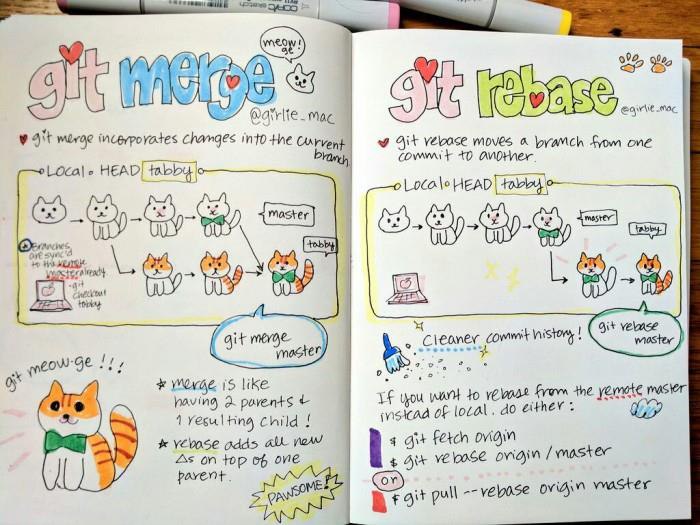 meow!
ge
git merge
@girlie_mac
git merge incorporates changes into the current
branch
LOCAL HEAD tabby
master
tabby
Branches
are sync'd
to the remote
master already
git
checkout
tabby
git merge
master
git meow-ge !!!
merge is like
having 2 parents &
1 resulting child!
rebase adds all new
Δs on top of one
parent.
PAWSOME!
git rebase
@girlie_mac
git rebase moves a branch from one
commit to another.
LOCAL HEAD tabby
master
tabby
git rebase
master
Cleaner commit history!
If you want to rebase from the remote master
instead of local, do either:
$ git fetch origin
$ git rebase origin/master
or
$ git pull --rebase origin master